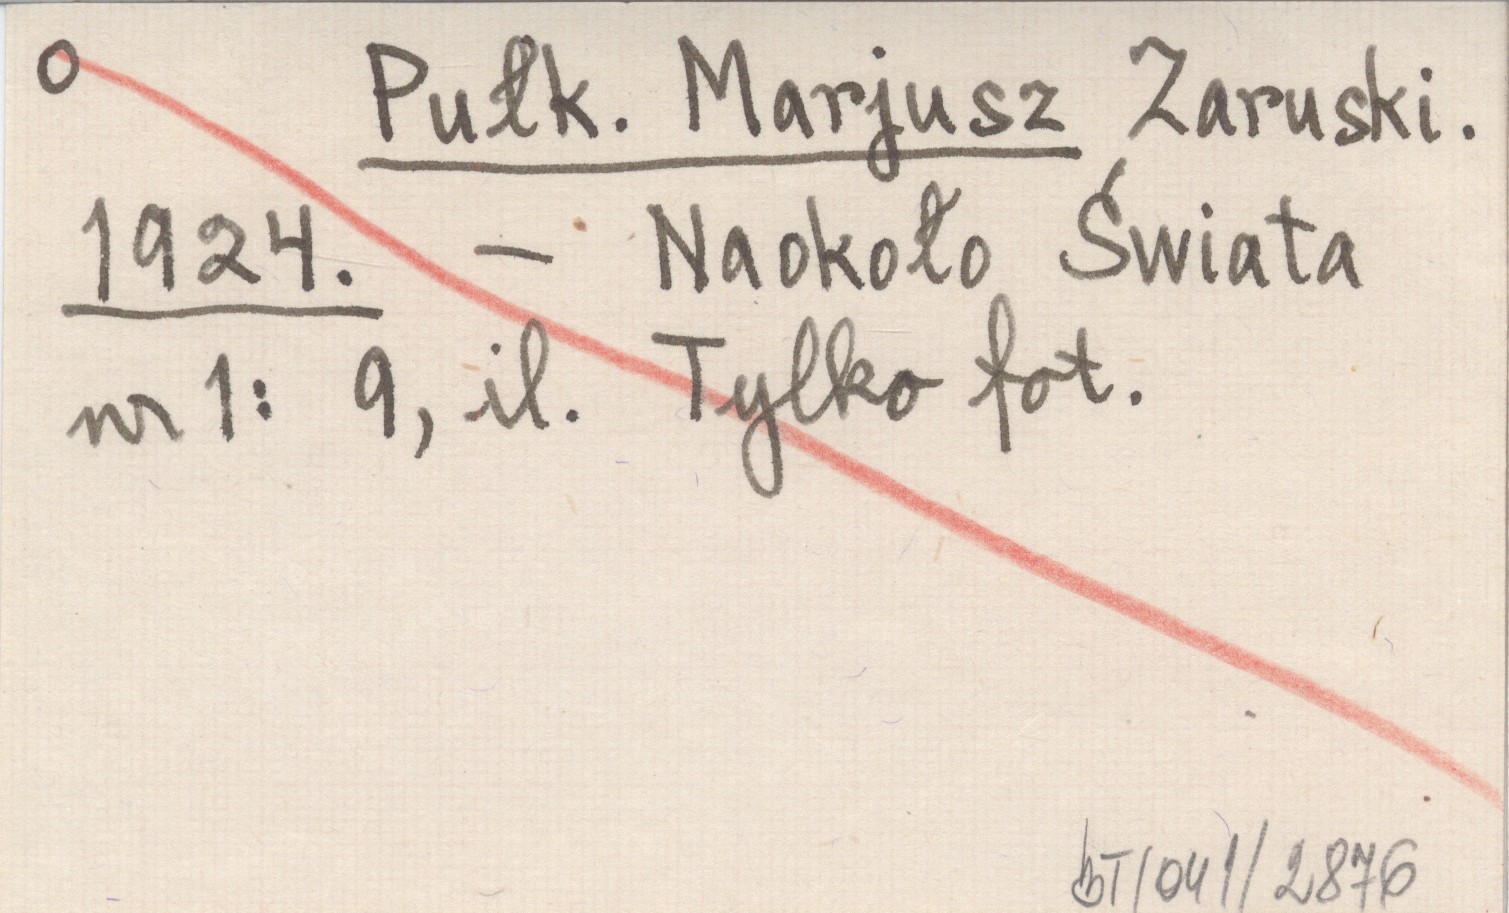 O Pułk. Marjusz Zaruski.
1924. – Naokoło Świata
nr 1: 9, il. Tylko fot.
bT/041/2876